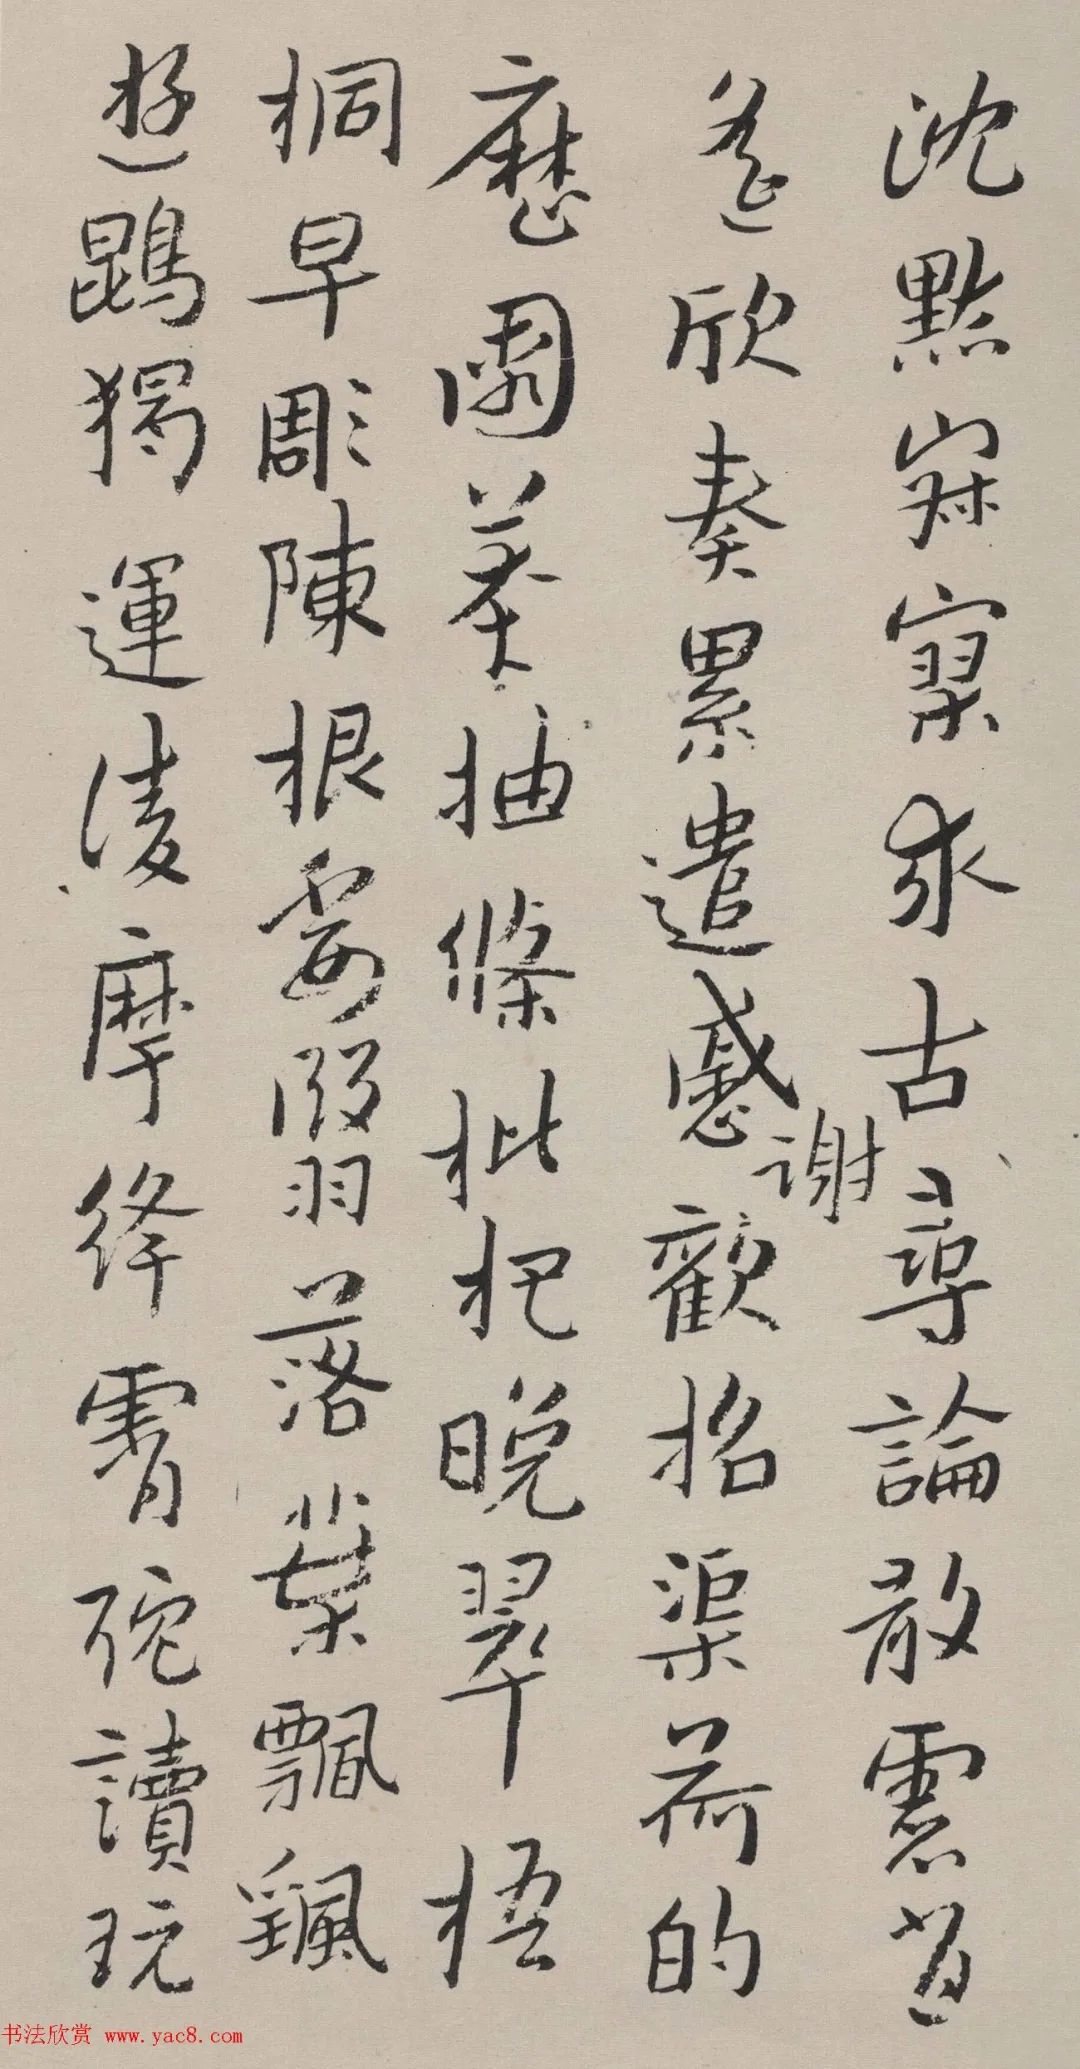 沈默寂寥求古尋論散慮逍
遙欣奏累遣慼謝歡招渠荷的
歷園莽抽條枇杷晚翠梧
桐早彫陳根委翳落葉飄颻
遊鵾獨運凌摩絳霄耽讀玩
书法欣赏 www.yac8.com